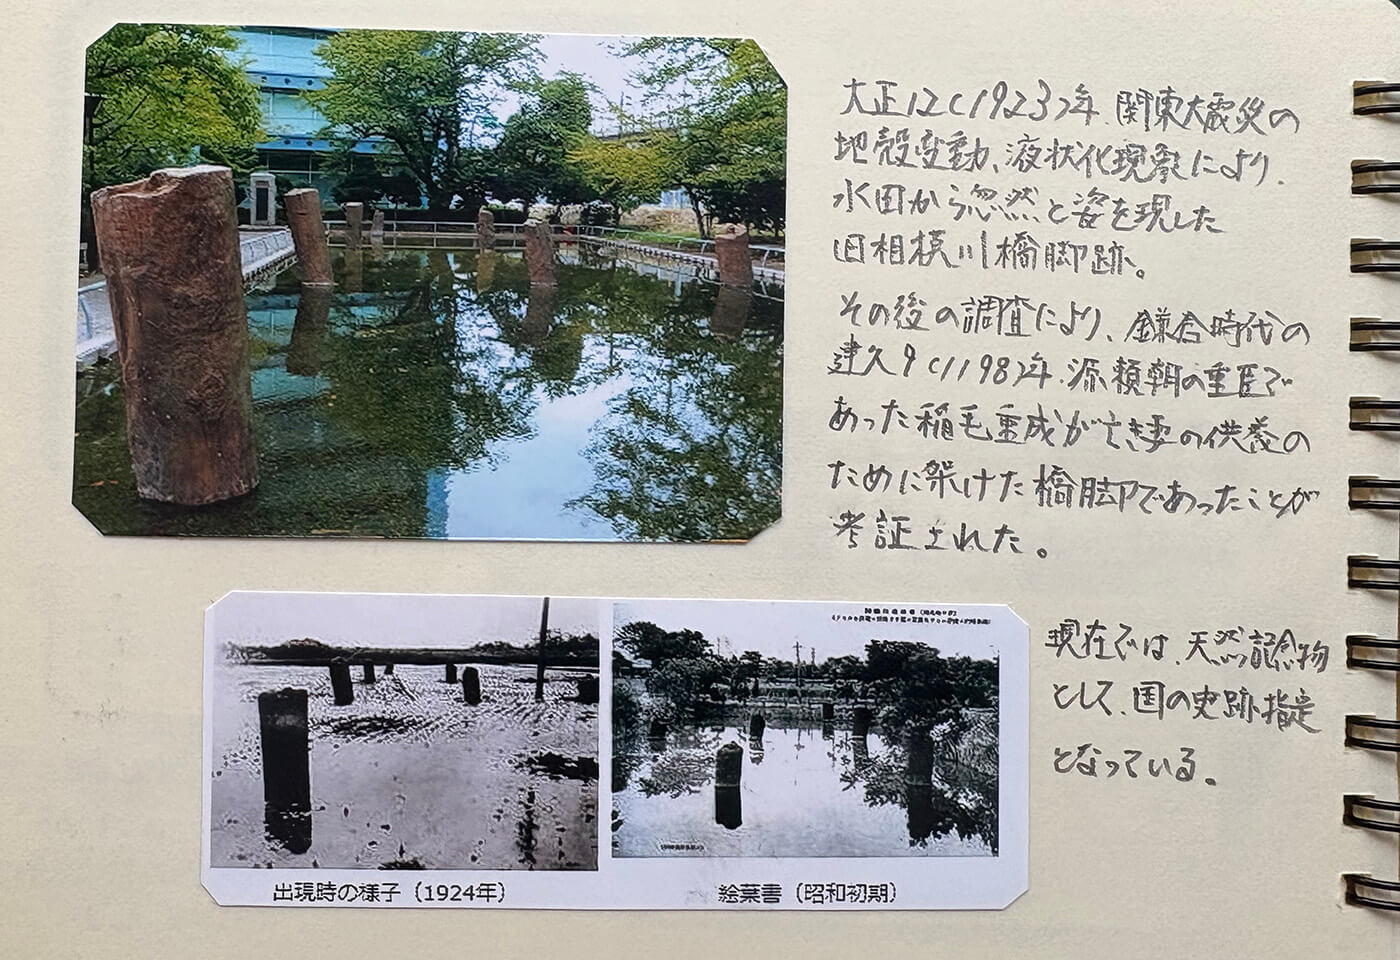 大正12(1923)年、関東大震災の
地殻変動、液状化現象により、
水田から忽然と姿を現した
旧相模川橋脚跡。
その後の調査により、鎌倉時代の
建久9(1198)年、源頼朝の重臣で
あった稲毛重成が亡き妻の供養の
ために架けた橋脚であったことが
考証された。
現在では、天然記念物
として、国の史跡指定
となっている。
出現時の様子（1924年）
絵葉書（昭和初期）